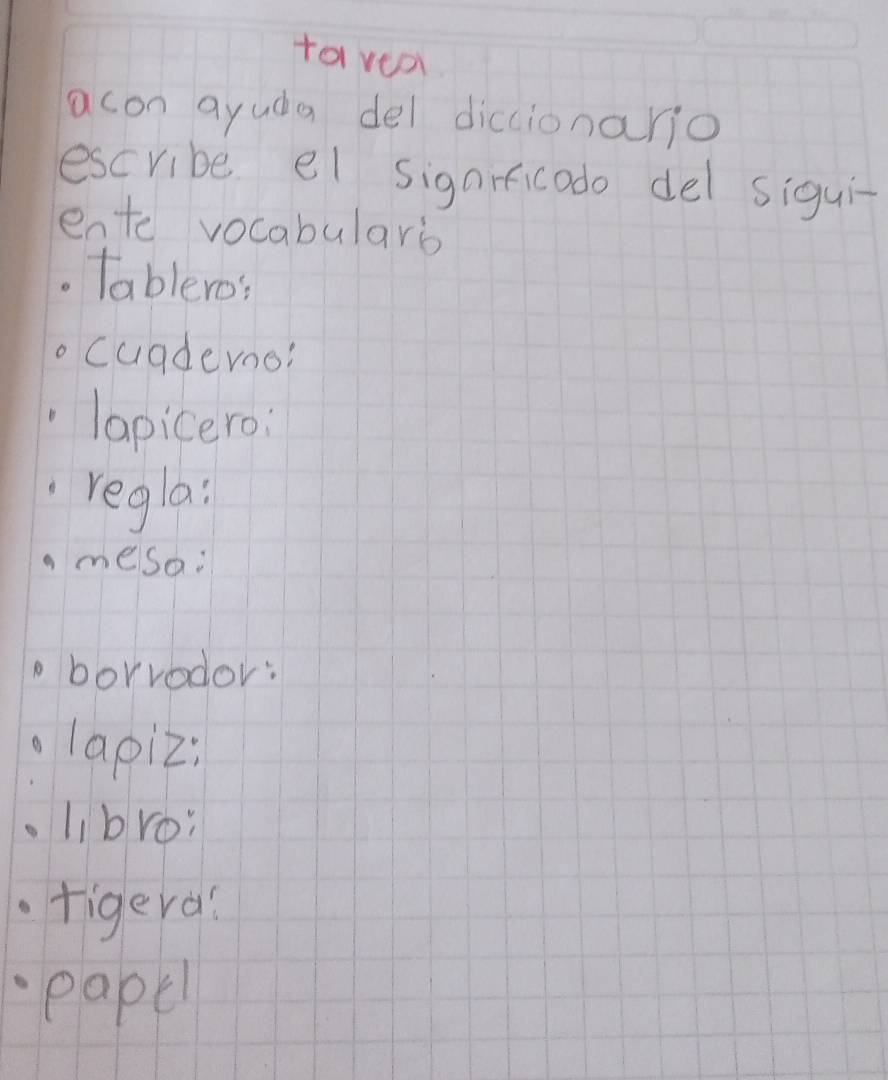 tarea
acon ayuda del diccionario
escribe el significado del sigui-
ente vocabulario
• Tablero:
• cuaderno:
• lapicero:
• regla:
• mesa:
• borrador:
• lapiz:
• libro:
• tigera:
• papel